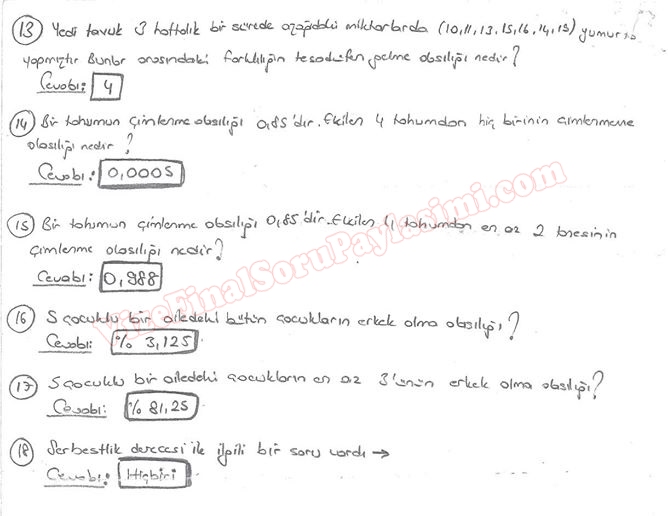 13) Yedi tavuk 3 haftalık bir sürede aşağıdaki miktarlarda (10,11,13,15,16,14,15) yumurta
yapmıştır Bunlar arasındaki farklılığın tesadüften gelme olasılığı nedir?
Cevabı: 4
14) Bir tohumun çimlenme olasılığı 0,85'dir. Ekilen 4 tohumdan hiç birinin çimlenmeme
olasılığı nedir?
Cevabı: 0,0005
15) Bir tohumun çimlenme olasılığı 0,85'dir. Ekilen 4 tohumdan en az 2 tanesinin
çimlenme olasılığı nedir?
Cevabı: 0,988
16) 5 çocuklu bir ailedeki bütün çocukların erkek olma olasılığı?
Cevabı: % 3,125
17) 5 çocuklu bir ailedeki çocukların en az 3'ünün erkek olma olasılığı?
Cevabı: % 81,25
18) Serbestlik derecesi ile ilgili bir soru vardı →
Cevabı: Hiçbiri
VizeFinalSoruPaylasimi.com